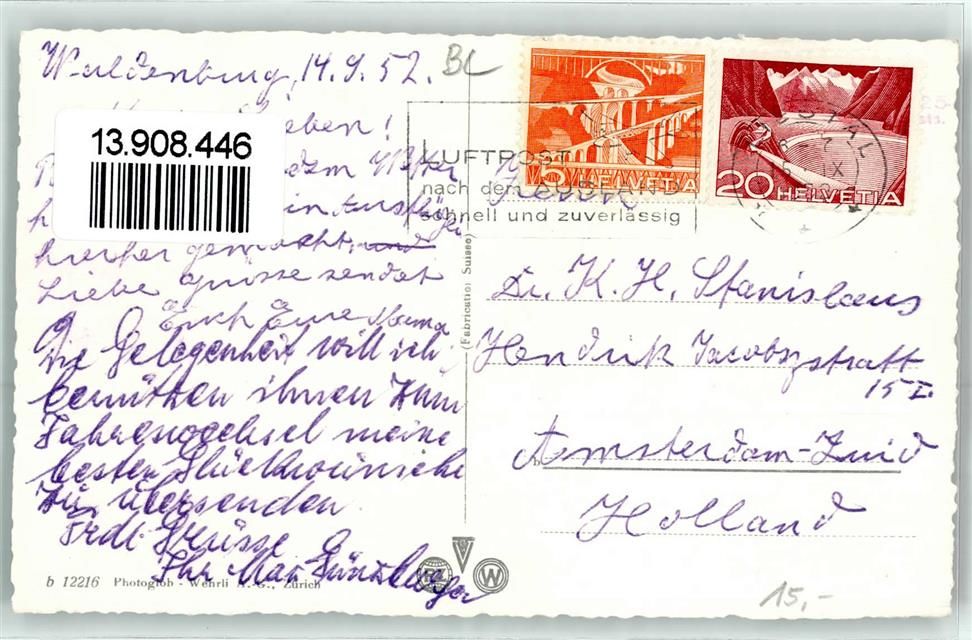 Waldenburg, 14.9.52. BL
Lieben!
13.908.446
dem Wetter
hierher gemacht, und
Liebe Grüsse sendet
Euch Eure Mama
Die Gelegenheit will ich
benützen ihnen zum
Jahreswechsel meine
besten Glückwünsche
zu übersenden
Frdl. Grüsse
Ihr Max Günzburger
b 12216 Photoglob - Wehrli A. G., Zürich
(Fabrication Suisse)
LUFTPOST
nach dem AUSLAND
schnell und zuverlässig
5 HELVETIA
20 HELVETIA
Dr. K. H. Stanislaus
Hendrik Jacobszstratt
15 I.
Amsterdam-Zuid
Holland
15,-